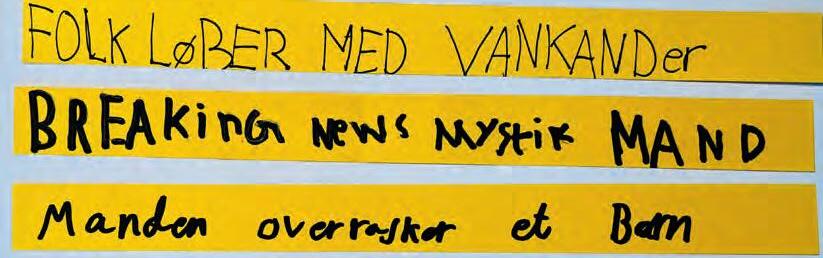 FOLK LØBER MED VANKANDer
BREAKiNG NeWs Mystik MAND
Manden overrasker et Barn